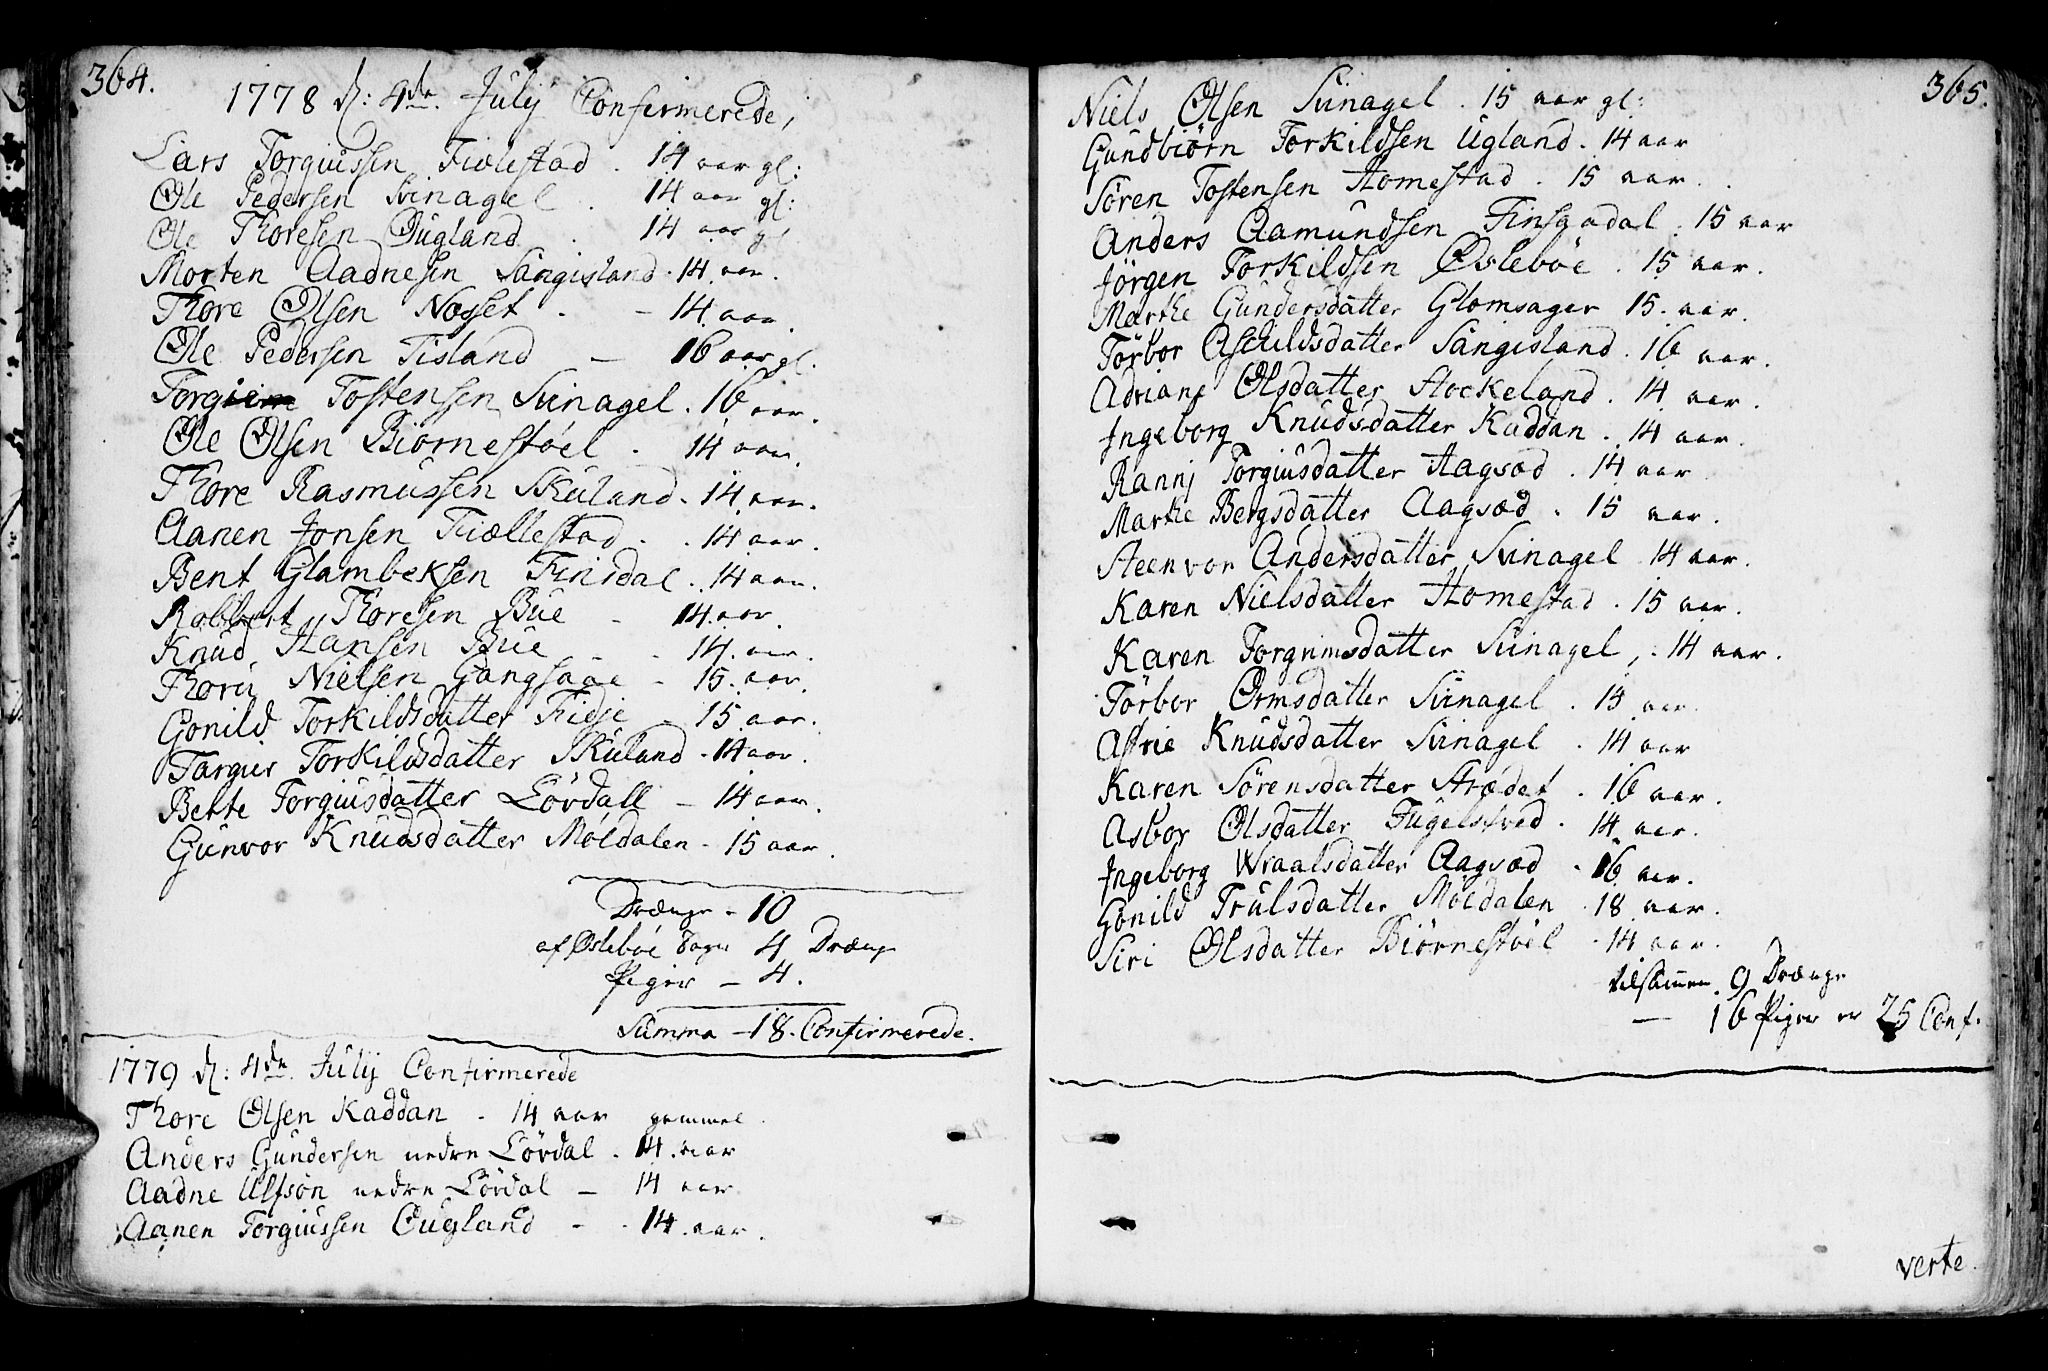 364.
1778 d: 4de Julij Confirmerede,
Lars Torgiussen Fiælestad . 14 aar gl:
Ole Pedersen Svinagel . 14 aar gl:
Ole Thoresen Øugland . 14 aar gl.
Morten Aadnesen Sangisland . 14 aar.
Thore Olsen Nosset . - 14 aar.
Ole Pedersen Tisland — 16 aar gl.
Torg Tostensen Svinagel . 16 aar.
Ole Olsen Biørnestøel . 14 aar.
Thore Rasmussen Skuland . 14 aar.
Aanen Jonsen Fiællestad . . 14 aar.
Bent Glambeksen Finsdal . 14 aar.
Robbert Thoresen Bue - 14 aar.
Knud Hansen Bue - - 14 aar.
Nielsen Gangsaae - 15 aar.
Gonild Torkildsdatter Fidje - 15 aar.
Targier Torkildsdatter Skuland - 14 aar.
Bette Torgiusdatter Lövdall - 14 aar.
Gunvor Knudsdatter Moldalen - 15 aar.
Drænge - 10
af Øslebøe Sogn 4 Drænge
Piger - 4.
Summa - 18. Confirmerede.
1779 d: 4de Julij Confirmerede
Thore Olsen Kaddan . 14 aar gammel.
Anders Gundersen nedre Lövdal . 14 aar
Aadne Ulfsøn nedre Lövdal — 14 aar
Aanen Torgiussen Øugland - . 14 aar.
365.
Niels Olsen Svinagel . 15 aar gl:
Gundbiørn Torkildsen Ugland . 14 aar
Sören Tostensen Homestad . 15 aar.
Anders Aamundsen Finsaadal . 15 aar
Jörgen Torkildsen Øslebøe . 15 aar.
Marthe Gundersdatter Glomsager 15 aar.
Törbor Aschildsdatter Sangisland . 16 aar.
Adriane Olsdatter Stockeland . 14 aar.
Jngeborg Knudsdatter Kaddan . 14 aar.
Rannj Torgiusdatter Aagsæd . 14 aar
Marthe Bergsdatter Aagsæd . 15 aar.
Steenvor Andersdatter Svinagel 14 aar.
Karen Nielsdatter Homestad . 15 aar.
Karen Torgrimsdatter Svinagel, . 14 aar.
Törbor Ormsdatter Svinagel . 15 aar.
Astrie Knudsdatter Svinagel . 14 aar
Karen Sörensdatter Strædet . 16 aar.
Asbor Olsdatter Fugelstved . 14 aar.
Jngeborg Wraalsdatter Aagsæd . 16 aar.
Gonild Trulsdatter Moldalen . 18 aar.
Siri Olsdatter Biørnestøel . 14 aar.
tilsammen . 9 Drænge
— 16 Piger er 25 Conf.
verte.